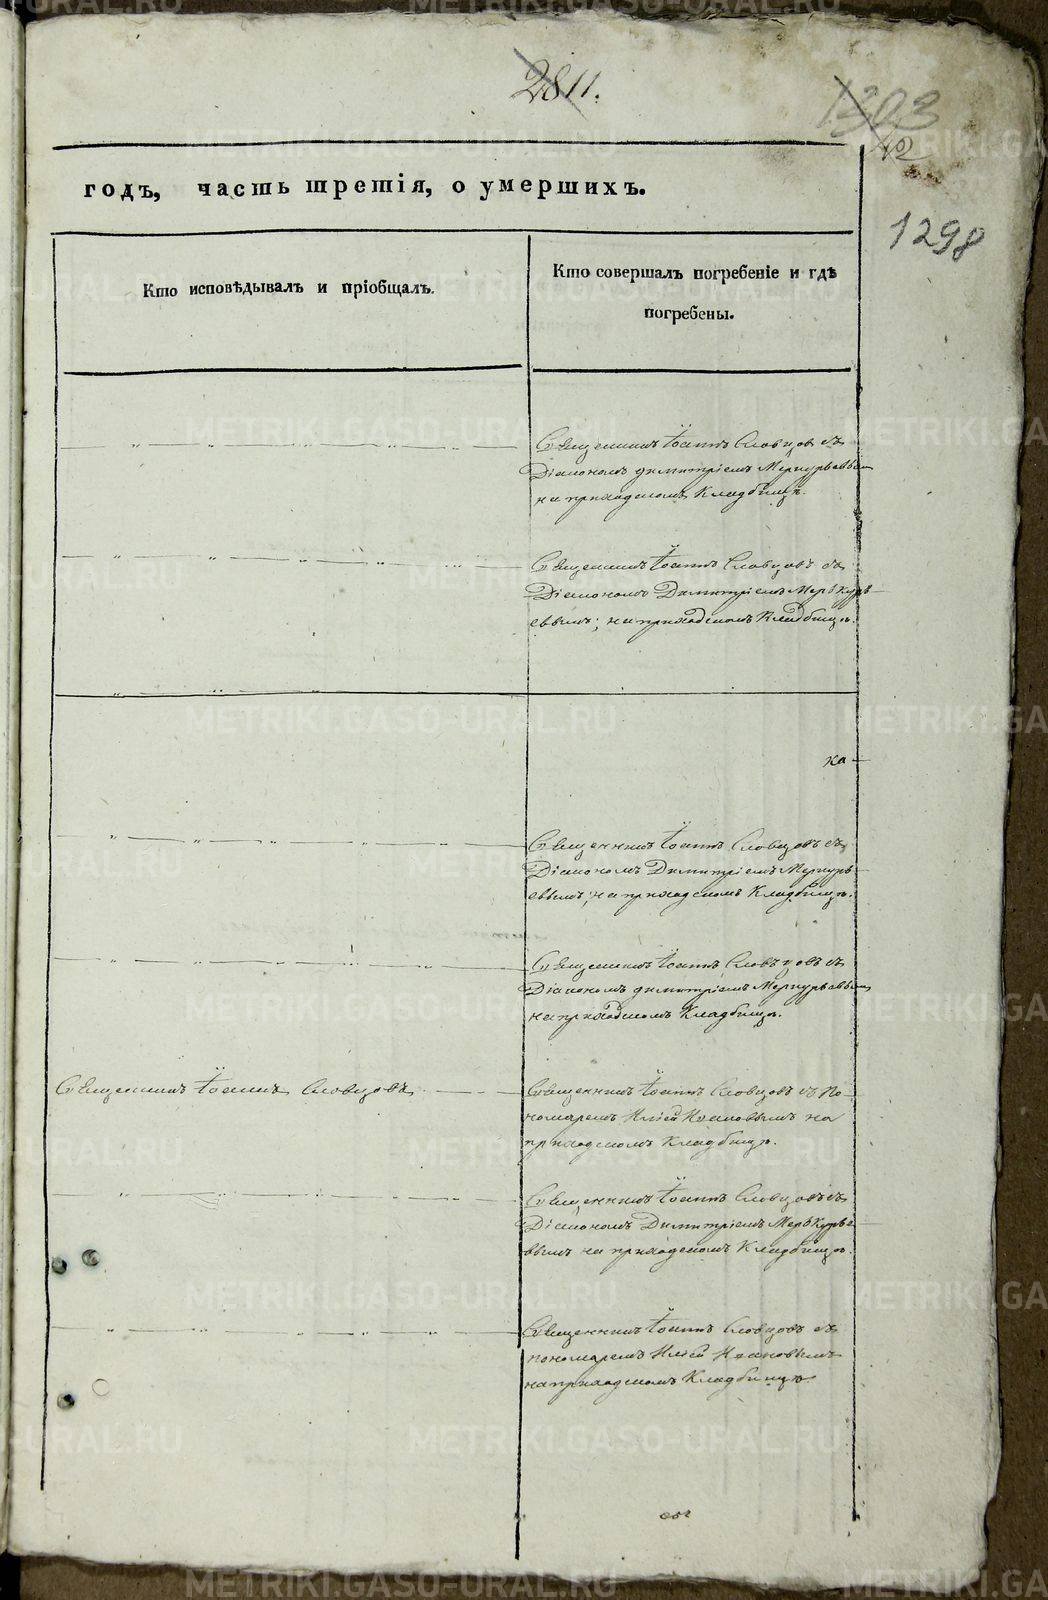 2811.
1303
1298
годъ, часть третія, о умершихъ.
Кто исповѣдывалъ и пріобщалъ.
Кто совершалъ погребеніе и гдѣ
погребены.
Священникъ Іоаннъ Словцовъ съ
Діакономъ димитріемъ Меркурьевым
на приходскомъ Кладбищѣ.
Священникъ Іоаннъ Словцовъ съ
Діакономъ Димитріемъ Меркурь
евымъ; на приходскомъ Кладбищѣ.
ка
Священникъ Іоаннъ Словцовъ съ
Діакономъ Димитріемъ Меркурь
евымъ; на приходскомъ Кладбищѣ.
Священникъ Іоаннъ Словцовъ съ
Діакономъ димитріемъ Меркурьевым
на приходскомъ Кладбищѣ.
Священникъ Іоаннъ Словцовъ
Священникъ Іоаннъ Словцовъ съ По-
номаремъ Иліей Ивановымъ на
приходскомъ Кладбищѣ.
Священникъ Іоаннъ Словцовъ съ
Діакономъ Димитріемъ Меркурье
вымъ на приходскомъ Кладбищѣ.
Священникъ Іоаннъ Словцовъ съ
пономаремъ Иліей Ивановымъ
на приходскомъ Кладбищѣ.
METRIKI.GASO-URAL.RU